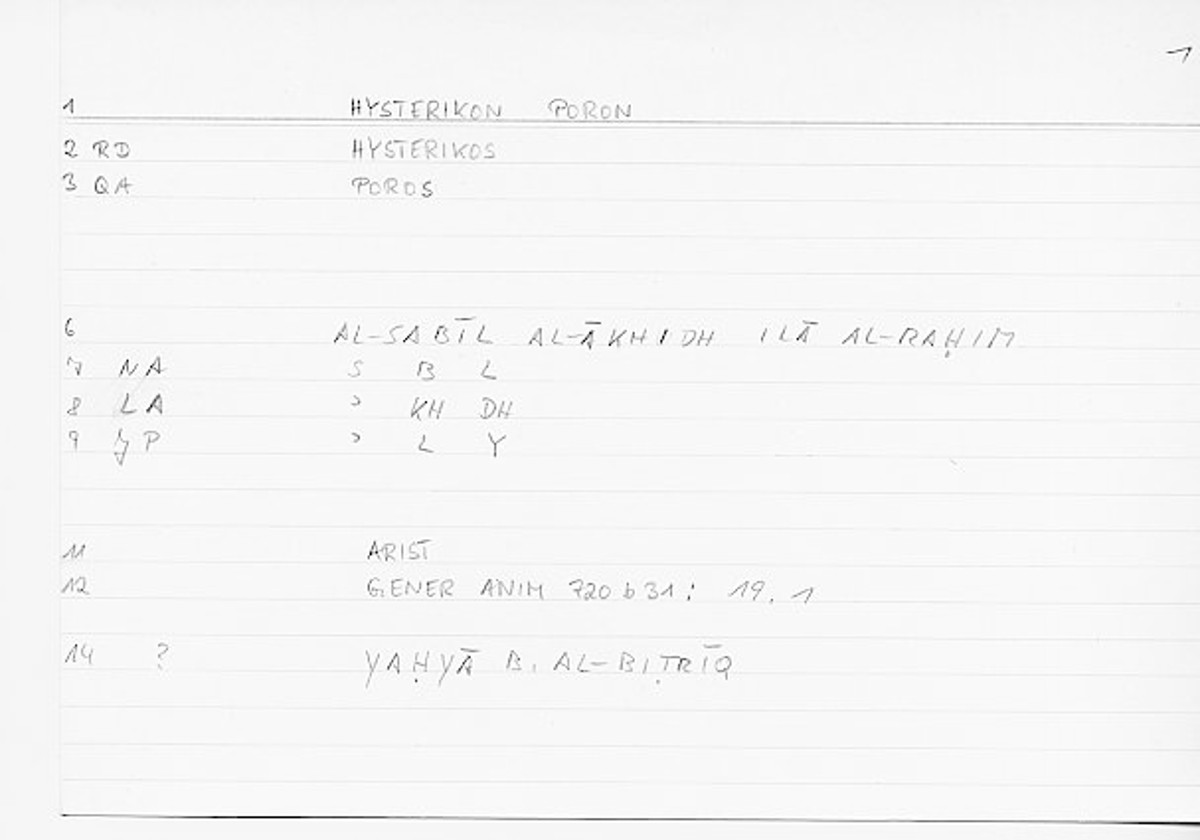 1
1 HYSTERIKON PORON
2 RD HYSTERIKOS
3 QA POROS
6 AL-SABĪL AL-ĀKHIDH ILĀ AL-RAḤIM
7 NA S B L
8 LA ʾ KH DH
9 JP ʾ L Y
11 ARIST
12 GENER ANIM 720 b 31: 19.1
14 ? YAḤYĀ B. AL-BIṬRĪQ